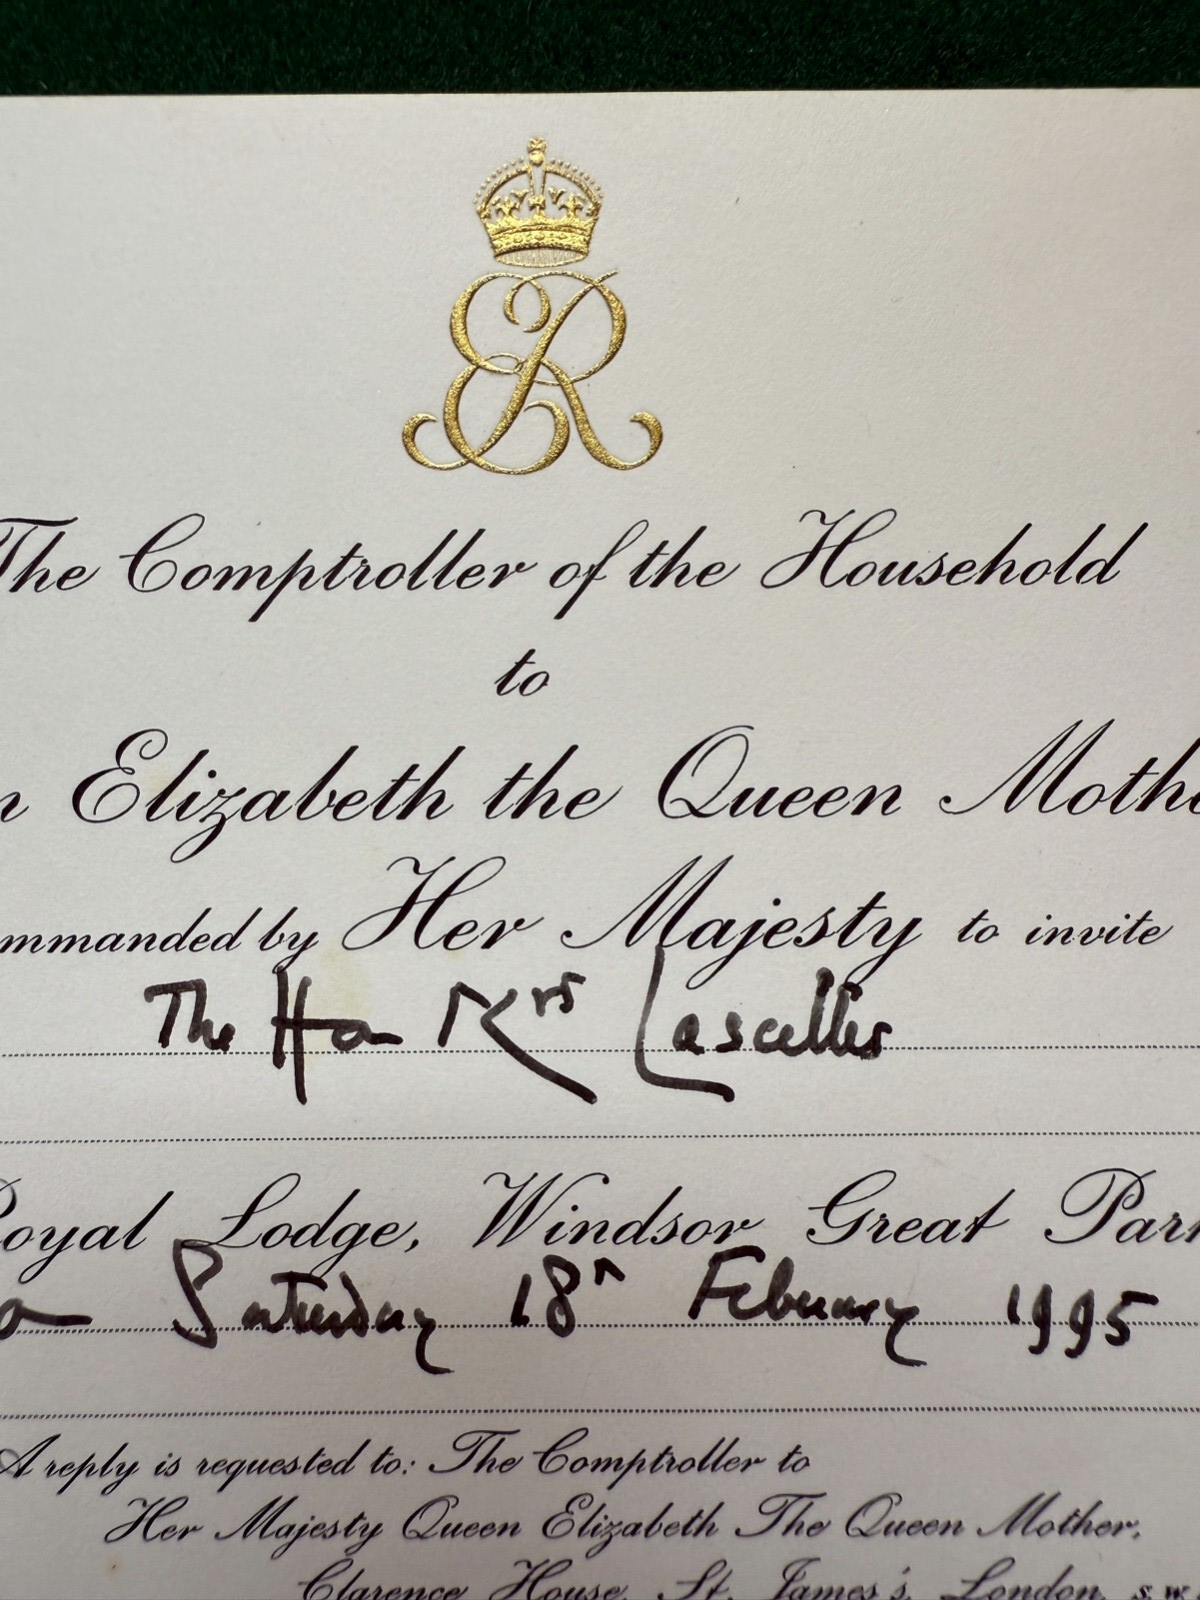 ER
The Comptroller of the Household
to
n Elizabeth the Queen Mothe
mmanded by Her Majesty to invite
The Hon Mrs Lascelles
Royal Lodge, Windsor Great Park
on Saturday 18th February 1995
A reply is requested to: The Comptroller to
Her Majesty Queen Elizabeth The Queen Mother,
Clarence House, St. James's, London, S.W.